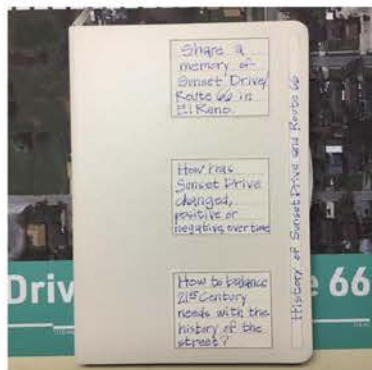 Share a
memory of
Sunset Drive/
Route 66 in
El Reno.
How has
Sunset Drive
changed,
positive or
negative, over time
How to balance
21st Century
needs with the
history of the
street?
History of Sunset Drive and Route 66
Driv
e 66